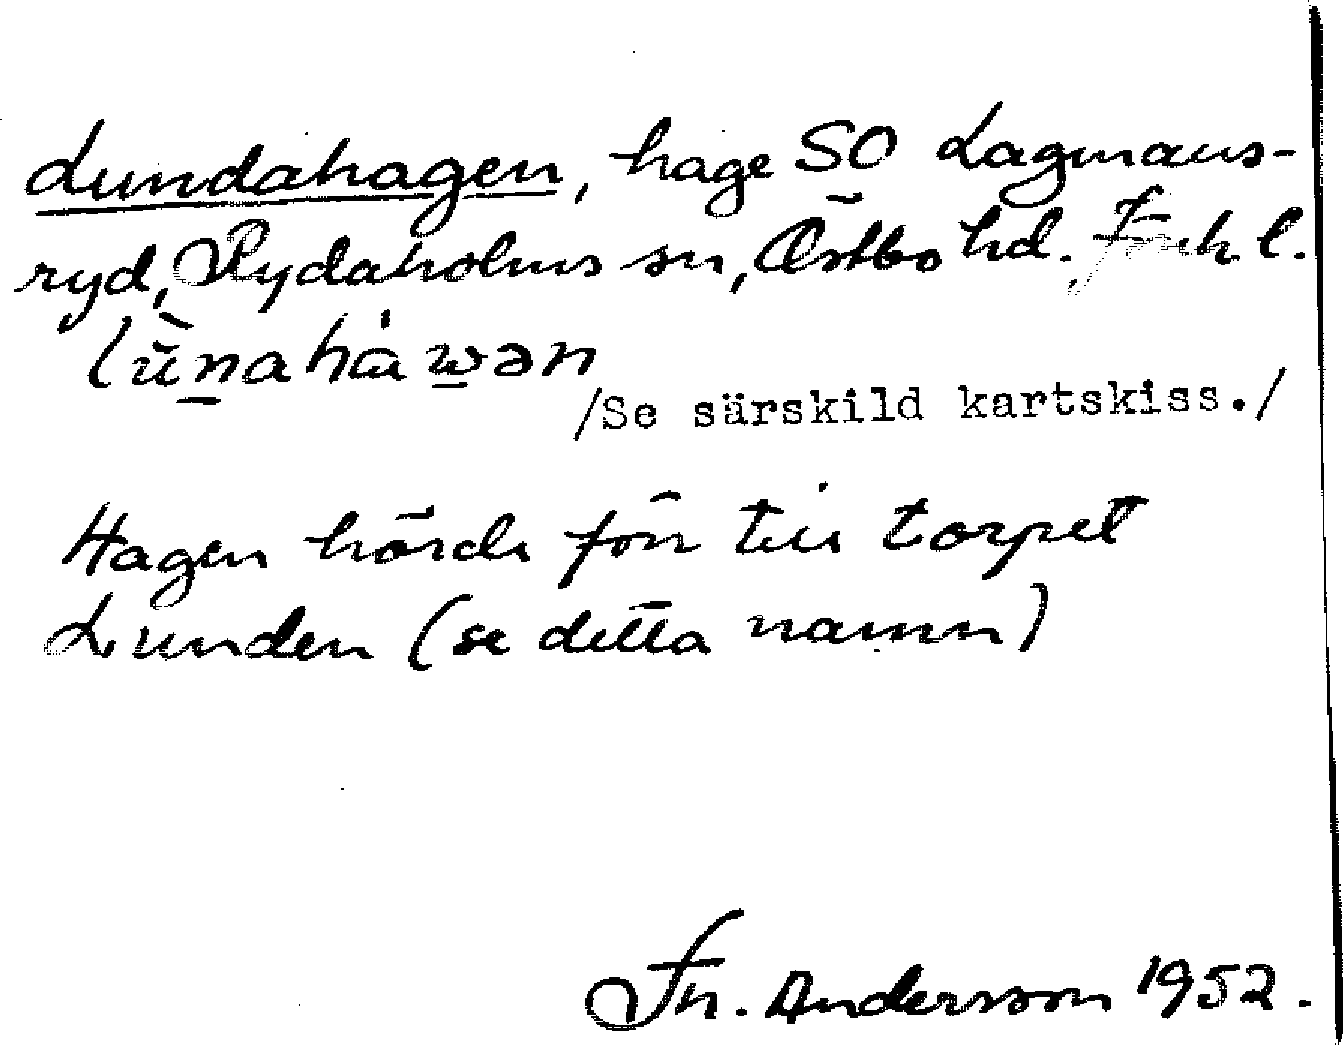 Lundahagen, hage SO Lagmans-
ryd, Rydaholms sn, Östbo hd. Jönk. l.
lùnahàwən
/Se särskild kartskiss./
Hagen hörde förr till torpet
Lunden (se detta namn)
Fr. Andersson 1952.